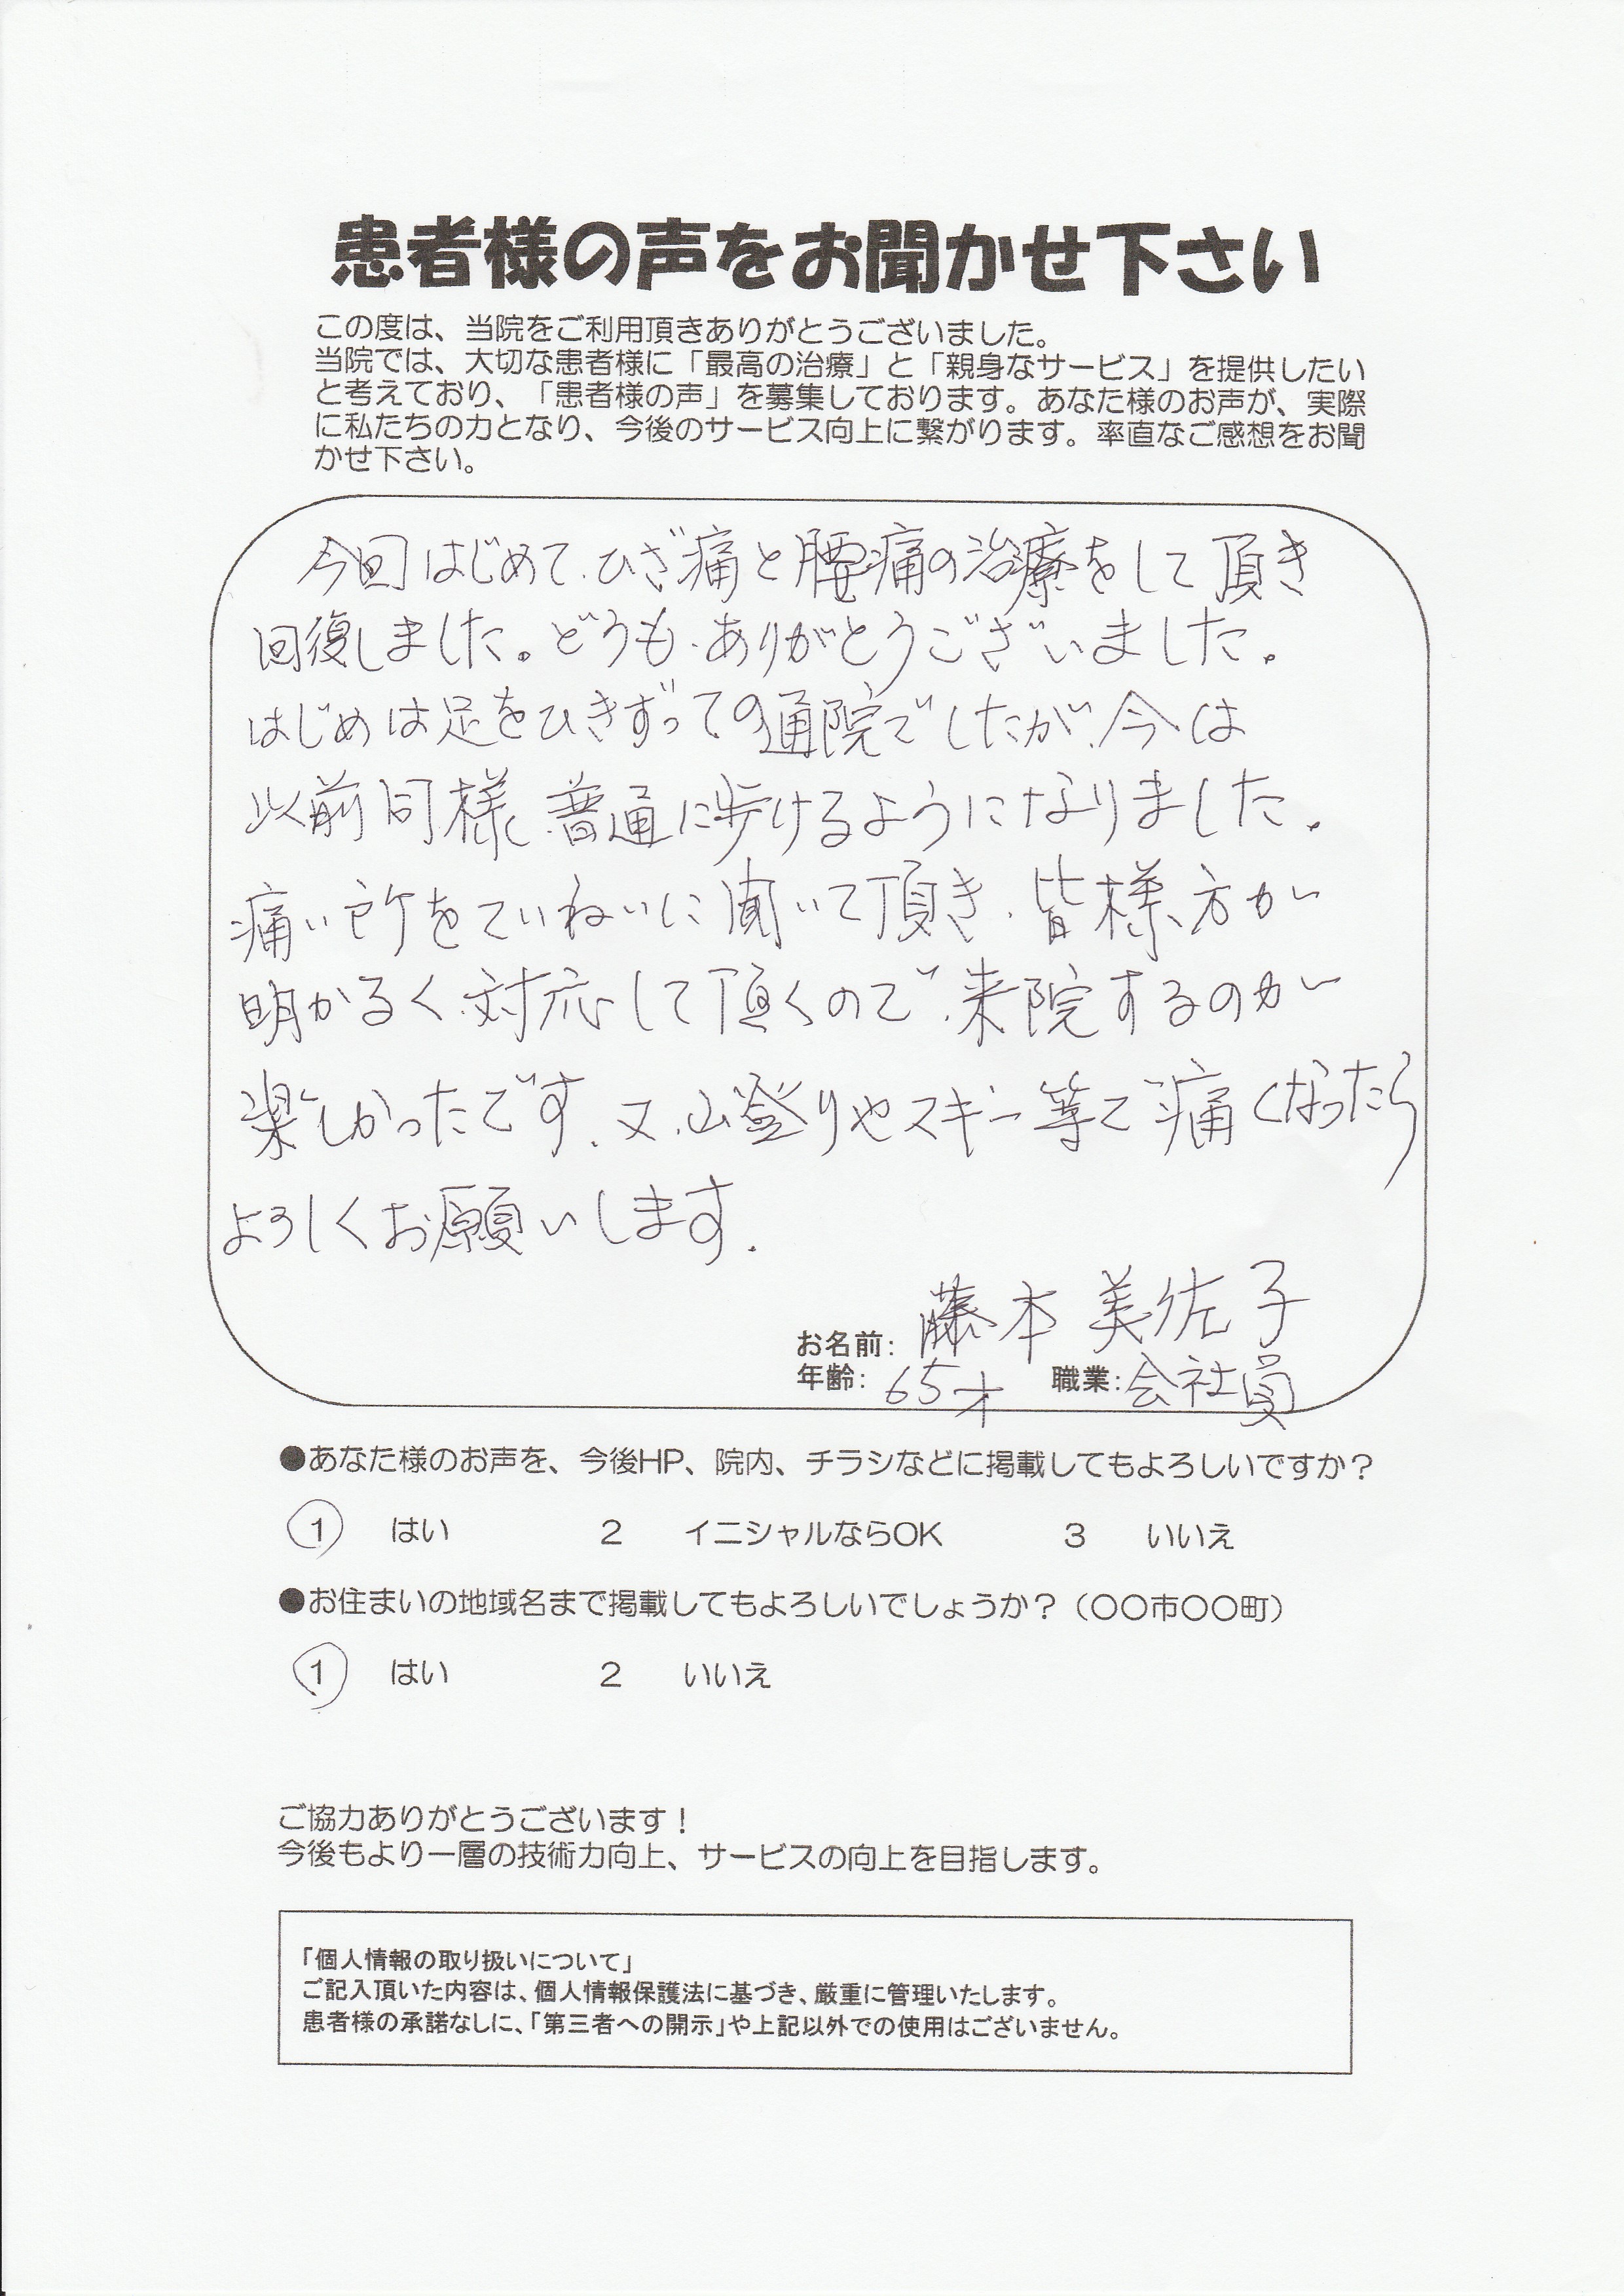 患者様の声をお聞かせ下さい
この度は、当院をご利用頂きありがとうございました。
当院では、大切な患者様に「最高の治療」と「親身なサービス」を提供したい
と考えており、「患者様の声」を募集しております。あなた様のお声が、実際
に私たちの力となり、今後のサービス向上に繋がります。率直なご感想をお聞
かせ下さい。
今回はじめて、ひざ痛と腰痛の治療をして頂き
回復しました。どうも、ありがとうございました。
はじめは足をひきずっての通院でしたが、今は
以前同様、普通に歩けるようになりました。
痛い所をていねいに聞いて頂き、皆様方が
明かるく、対応して頂くので、来院するのが
楽しかったです。又、山登りやスキー等で痛くなったら
よろしくお願いします。
お名前: 藤本 美佐子
年齢: 65才 職業: 会社員
●あなた様のお声を、今後HP、院内、チラシなどに掲載してもよろしいですか？
1 はい 2 イニシャルならOK 3 いいえ
●お住まいの地域名まで掲載してもよろしいでしょうか？（〇〇市〇〇町）
1 はい 2 いいえ
ご協力ありがとうございます！
今後もより一層の技術力向上、サービスの向上を目指します。
「個人情報の取り扱いについて」
ご記入頂いた内容は、個人情報保護法に基づき、厳重に管理いたします。
患者様の承諾なしに、「第三者への開示」や上記以外での使用はございません。